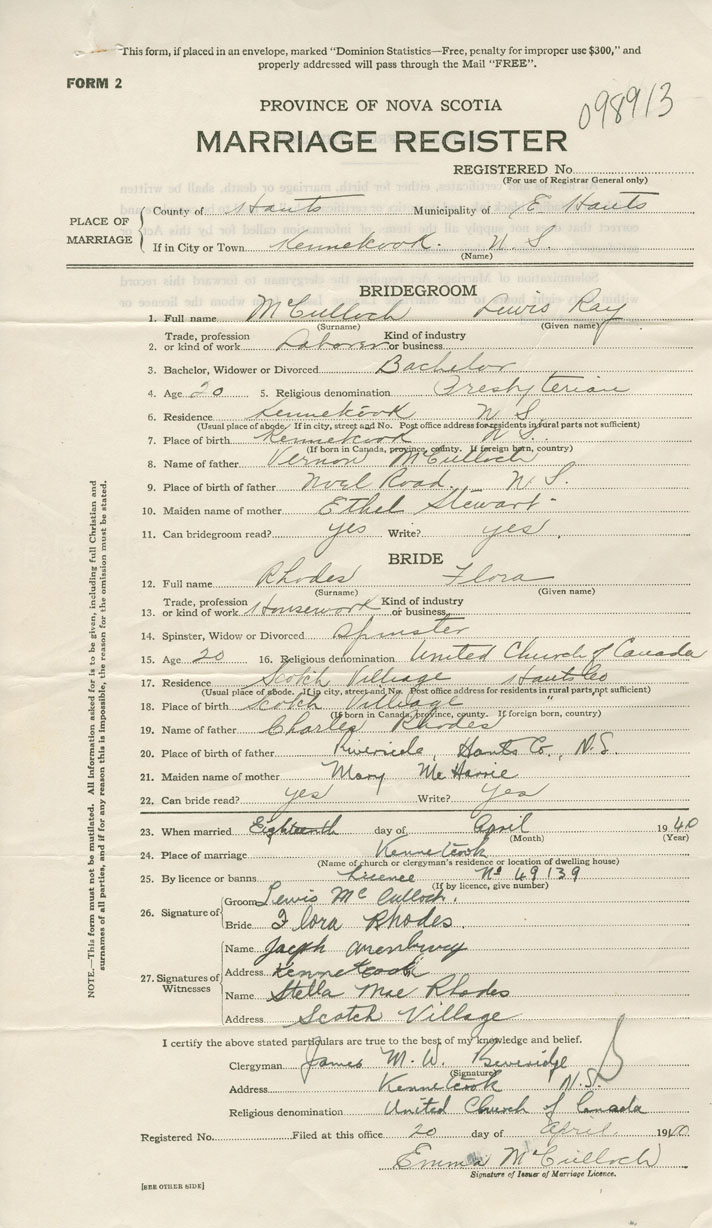 This form, if placed in an envelope, marked "Dominion Statistics—Free, penalty for improper use $300," and
properly addressed will pass through the Mail "FREE".
FORM 2
098913
PROVINCE OF NOVA SCOTIA
MARRIAGE REGISTER
REGISTERED No.
(For use of Registrar General only)
PLACE OF MARRIAGE
County of Hants Municipality of E. Hants
If in City or Town Kennekook. N. S.
(Name)
BRIDEGROOM
1. Full name McCulloch Lewis Ray
(Surname) (Given name)
2. Trade, profession or kind of work Laborer Kind of industry or business
3. Bachelor, Widower or Divorced Bachelor
4. Age 20 5. Religious denomination Presbyterian
6. Residence Kennekook N. S.
(Usual place of abode. If in city, street and No. Post office address for residents in rural parts not sufficient)
7. Place of birth Kennekook N. S.
(If born in Canada, province, county. If foreign born, country)
8. Name of father Vernon McCulloch
9. Place of birth of father Noel Road. N. S.
10. Maiden name of mother Ethel Stewart
11. Can bridegroom read? yes Write? yes
BRIDE
12. Full name Rhodes Flora
(Surname) (Given name)
13. Trade, profession or kind of work Housework Kind of industry or business
14. Spinster, Widow or Divorced Spinster
15. Age 20 16. Religious denomination United Church of Canada
17. Residence Scotch Villiage Hants Co
(Usual place of abode. If in city, street and No. Post office address for residents in rural parts not sufficient)
18. Place of birth Scotch Villiage "
(If born in Canada, province, county. If foreign born, country)
19. Name of father Charles Rhodes
20. Place of birth of father Riverside, Hants Co., N.S.
21. Maiden name of mother Mary
22. Can bride read? yes Write? yes
23. When married Eighteenth day of April 1940
(Month) (Year)
24. Place of marriage Kennetcook
(Name of church or clergyman's residence or location of dwelling house)
25. By licence or banns Licence No 49139
(If by licence, give number)
26. Signature of
Groom Lewis McCulloch.
Bride Flora Rhodes.
27. Signatures of Witnesses
Name
Address Kennetcook
Name Stella Mae Rhodes
Address Scotch Village
I certify the above stated particulars are true to the best of my knowledge and belief.
Clergyman James M. W. Beveridge
(Signature)
Address Kennetcook N.S.
Religious denomination United Church of Canada
Registered No. Filed at this office 20 day of April 1940
Emma McCulloch
Signature of Issuer of Marriage Licence.
[SEE OTHER SIDE]
NOTE.—This form must not be mutilated. All information asked for is to be given, including full Christian and
surnames of all parties, and if for any reason this is impossible, the reason for the omission must be stated.